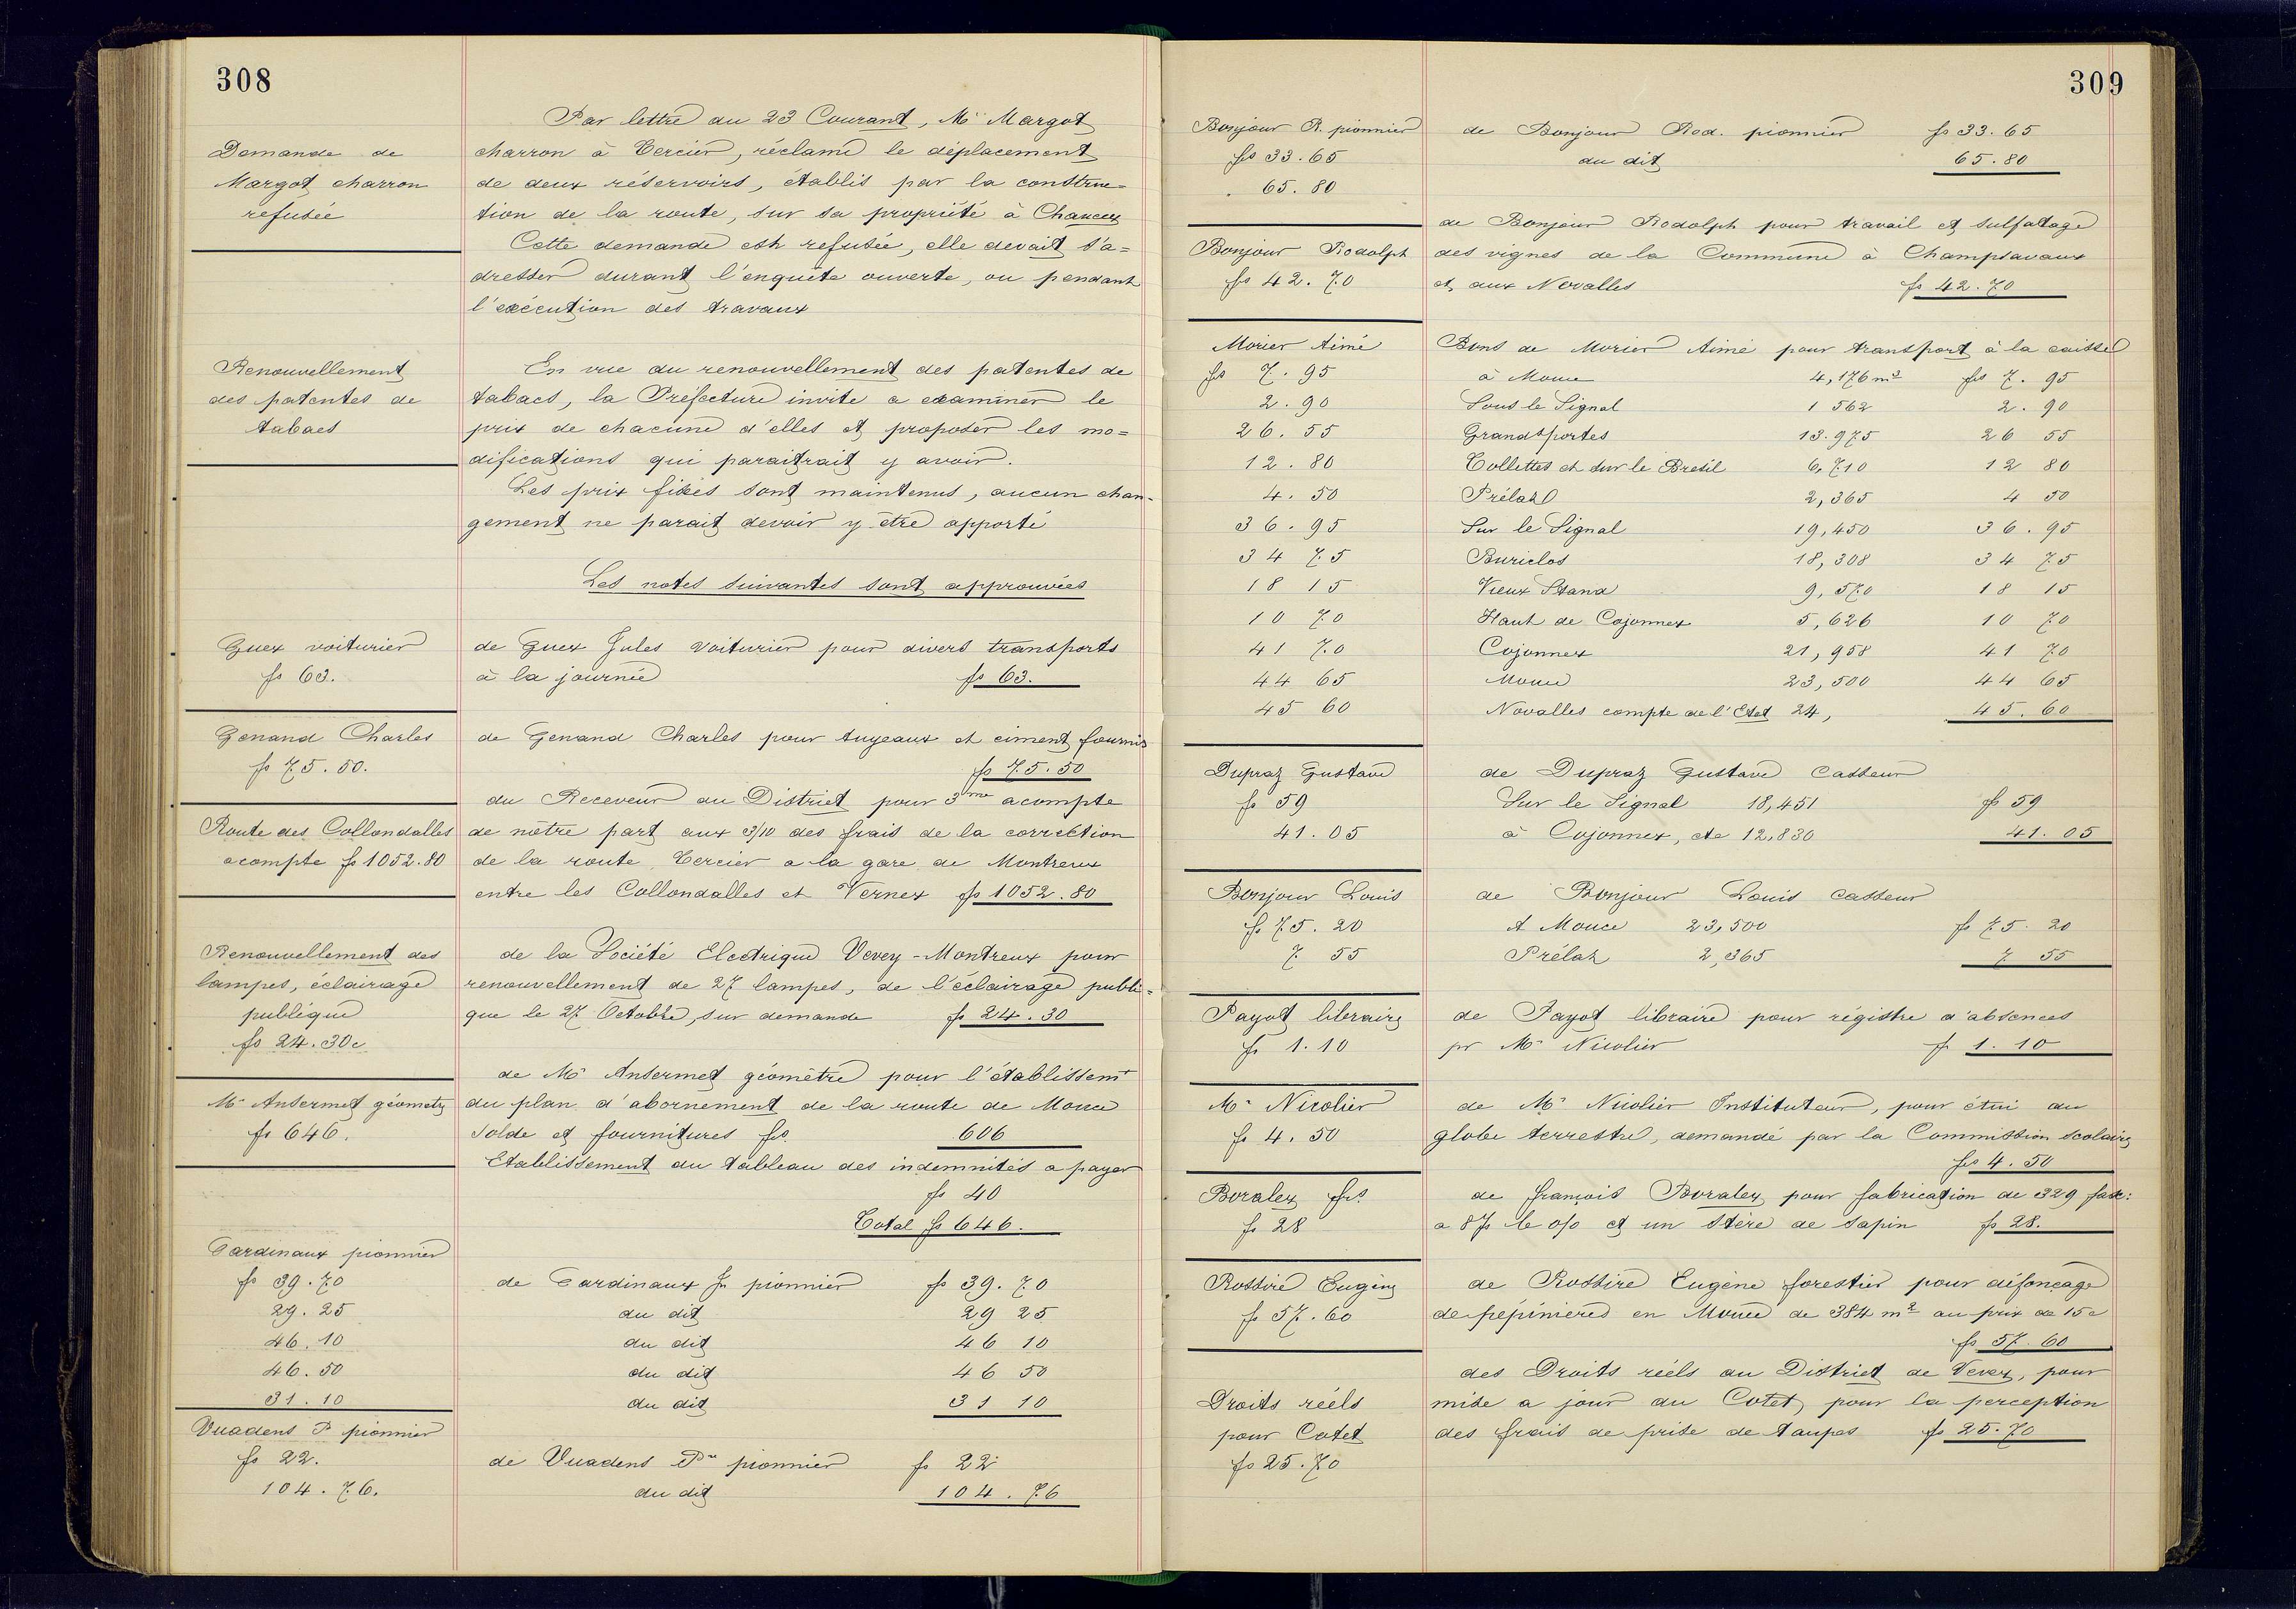 308
Par lettre du 23 Courant, Mr Margot
Demande de
Margot charron
refusée
charron à Tercier, réclame le déplacement
de deux réservoirs, établis par la construc=
tion de la route, sur sa propriété à Chaucey
Cette demande est refusée, elle devait s'a=
dresser durant l'enquête ouverte, ou pendant
l'exécution des travaux
Renouvellement
des patentes de
tabacs
En vue du renouvellement des patentes de
tabacs, la Préfecture invite a examiner le
prix de chacune d'elles et proposer les mo=
difications qui paraitrait y avoir.
Les prix fixés sont maintenus, aucun chan-
gement ne parait devoir y être apporté
Les notes suivantes sont approuvées
Guex voiturier
fs 63.
de Guex Jules voiturier pour divers transports
à la journée fs 63.
Genand Charles
fs 75.50.
de Genand Charles pour tuyeaux et ciment fournis
fs 75.50
Route des Collondalles
acompte fs 1052.80
du Receveur du District pour 3me acompte
de nôtre part aux 3/10 des frais de la correction
de la route Tercier a la gare de Montreux
entre les Collondalles et Vernex fs 1052.80
Renouvellement des
lampes, éclairage
publique
fs 24.30c
de la Société Electrique Vevey-Montreux pour
renouvellement de 27 lampes, de l'éclairage publi=
que le 27 Octobre, sur demande fs 24.30
Mr Ansermet géometre
fs 646.
de Mr Ansermet géomètre pour l'établissemt
du plan d'abornement de la route de Mouce
solde et fournitures fs. 606
Etablissement du tableau des indemnités a payer
fs 40
Total fs 646.
Cardinaux pionnier
fs 39.70
29.25
46.10
46.50
31.10
de Cardinaux Js pionnier fs 39.70
du dit 29 25
du dit 46 10
du dit 46 50
du dit 31 10
Vuadens P pionnier
fs 22.
104.76.
de Vuadens Pre pionnier fs 22
du dit 104.76
309
Bonjour R. pionnier
fs 33.65
65.80
de Bonjour Rod. pionnier fs 33.65
du dit 65.80
Bonjour Rodolph
fs 42.70
de Bonjour Rodolph pour travail et sulfatage
des vignes de la Commune à Champsavaux
et aux Novalles fs 42.70
Morier Aimé
fs 7.95
2.90
26.55
12.80
4.50
36.95
34 75
18 15
10 70
41 70
44 65
45 60
Bons de Morier Aimé pour transport à la caisse
à Mouce 4,176 m2 fs 7.95
Sous le Signal 1 562 2.90
Grands portes 13.975 26 55
Collettes et sur le Bresil 6,710 12 80
Prélaz 2,365 4 50
Sur le Signal 19,450 36.95
Buriclos 18,308 34 75
Vieux Stand 9,570 18 15
Haut de Cojonnex 5,626 10 70
Cojonnex 21,958 41 70
Mouce 23,500 44 65
Novalles compte de l'Etat 24, 45.60
Dupraz Gustave
fs 59
41.05
de Dupraz Gustave Casseur
Sur le Signal 18,451 fs 59
à Cojonnex, etc 12,830 41.05
Bonjour Louis
fs 75.20
7 55
de Bonjour Louis casseur
A Mouce 23,500 fs 75.20
Prélaz 2,365 7 55
Payot libraire
fs 1.10
de Payot libraire pour régistre d'absences
pr Mr Nicolier fs 1.10
Mr Nicolier
fs 4.50
de Mr Nicolier Instituteur, pour étui du
globe terrestre, demandé par la Commission scolaire
fs 4.50
Boraley frs
fs 28
de françois Boraley pour fabrication de 329 fasc:
a 8 fs le o/o et un stère de sapin fs 28.
Rossire Eugène
fs 57.60
de Rossire Eugène forestier pour défonçage
de pépinieres en Mouce de 384 m2 au prix de 15c
fs 57.60
Droits réèls
pour Cotet
fs 25.70
des Droits réèls du District de Vevey, pour
mise a jour du Cotet, pour la perception
des frais de prise de taupes fs 25.70